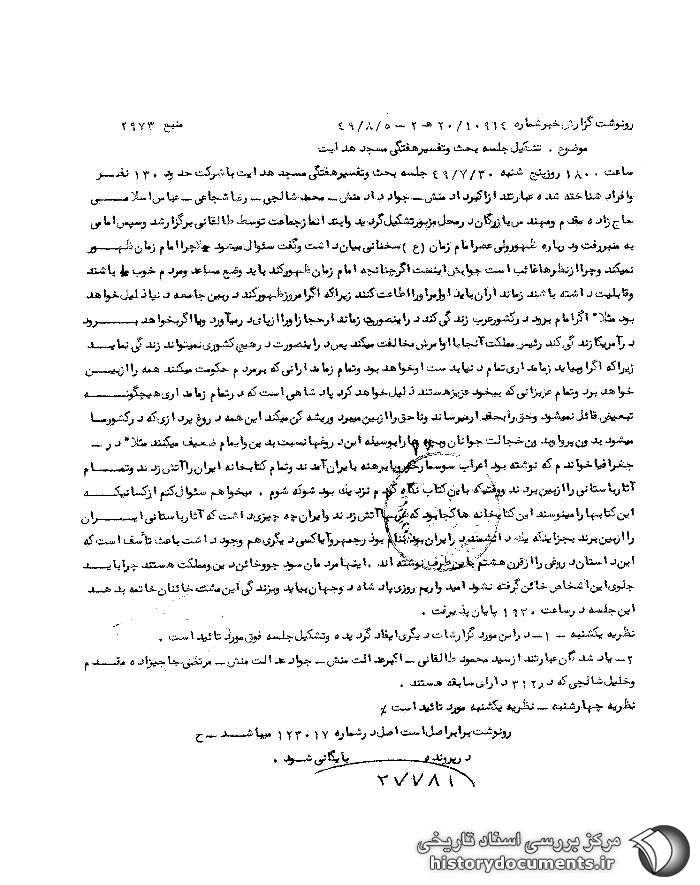 رونوشت گزارش خبر شماره ۲۰/۱۰۹۱۴ هـ ۲ – ۴۹/۸/۵ منبع ۲۹۷۳
موضوع . تشکیل جلسه بحث و تفسیر هفتگی مسجد هدایت
ساعت ۱۸۰۰ روز پنج شنبه ۴۹/۷/۳۰ جلسه بحث و تفسیر هفتگی مسجد هدایت با شرکت حدود ۱۳۰ نفر
و افراد شناخته شده عبارتند از اکبر داد منش – جواد داد منش – محمد شالچی – رضا شجاعی – عباس اسلامی
حاج زاده مقدم و مهندس بازرگان در محل مزبور تشکیل گردید و ابتدا نماز جماعت توسط طالقانی برگزار شد و سپس امامی
به منبر رفت و درباره ظهور ولی عصر امام زمان (ع) سخنانی بیان داشت و گفت سئوال میشود چرا امام زمان ظهور
نمیکند و چرا از نظرها غائب است جوابش اینست اگر چنانچه امام زمان ظهور کند باید وضع مساعد و مردم خوب باشند
و قابلیت داشته باشند زمامداران باید اوامر او را اطاعت کنند زیرا که اگر امروز ظهور کند در بین جامعه دنیا ذلیل خواهد
بود مثلا" اگر امام برود در کشور عرب زندگی کند در اینصورت زمامدار حجاز او را از پای در میآورد و یا اگر بخواهد برود
در آمریکا زندگی کند رئیس مملکت آنجا با اوامرش مخالفت میکند پس در اینصورت در هیچ کشوری نمیتواند زندگی نماید
زیرا که اگر او بیاید زمامداری تمام دنیا بدست او خواهد بود و تمام زمامدارانی که بر مردم حکومت میکنند همه را از بین
خواهد برد و تمام عزیزانی که بیخود عزیز هستند ذلیل خواهد کرد پادشاهی است که در تمام زمامداری هیچگونه
تبعیضی قائل نمیشود و حق را بحقدار میرساند و ناحق را از بین میبرد و ریشه کن میکند این همه دروغ پردازی که در کشور ما
میشود بدون پروا و بدون خجالت جوانان و بچه ها را بوسیله این دروغها نسبت بدین و ایمام ضعیف میکنند مثلا" در –
جغرافیا خواندم که نوشته بود اعراب سوسمار خور و پا برهنه بایران آمدند و تمام کتابخانه ایران را آتش زدند و تمام
آثار باستانی را از بین بردند وقتیکه باین کتاب نگاه کردم نزدیک بود شوکه شوم . میخواهم سئوال کنم از کسانیکه
این کتابها را مینوسند این کتابخانه ها کجا بود که عربها آتش زدند و ایران چه چیزی داشت که آثار باستانی ایران
را از بین بردند بجز اینکه یک دانشمند در ایران بود بنام بوذرجمهر و آیا کسی دیگری هم وجود داشت باعث تأسف است که
این داستان دروغی را از قرن هشتم باین طرف نوشته اند . اینها مردمان سود جو و خائن دین و مملکت هستند چرا باید
جلوی این اشخاص خائن گرفته نشود امید واریم روزی پادشاه دو جهان بیاید و بزندگی این مشت خائنان خاتمه بدهد
این جلسه در ساعت ۱۹۳۰ پایان پذیرفت .
نظریه یکشنبه – ۱– در این مورد گزارشات دیگری ایفاد گردیده و تشکیل جلسه فوق مورد تائید است .
۲– یاد شدگان عبارتند از سید محمود طالقانی – اکبر عدالت منش – جواد عدالت منش – مرتضی حاجیزاده مقدم
و خلیل شالچی که در ۳۱۲ دارای سابقه هستند .
نظریه چهارشنبه – نظریه یکشنبه مورد تائید است ٪
رونوشت برابر اصل است اصل در شماره ۱۲۳۰۱۷ میباشد – ح
در پرونده بایگانی شود .
۲۷۷۸۱
مرکز بررسی اسناد تاریخی
historydocuments.ir